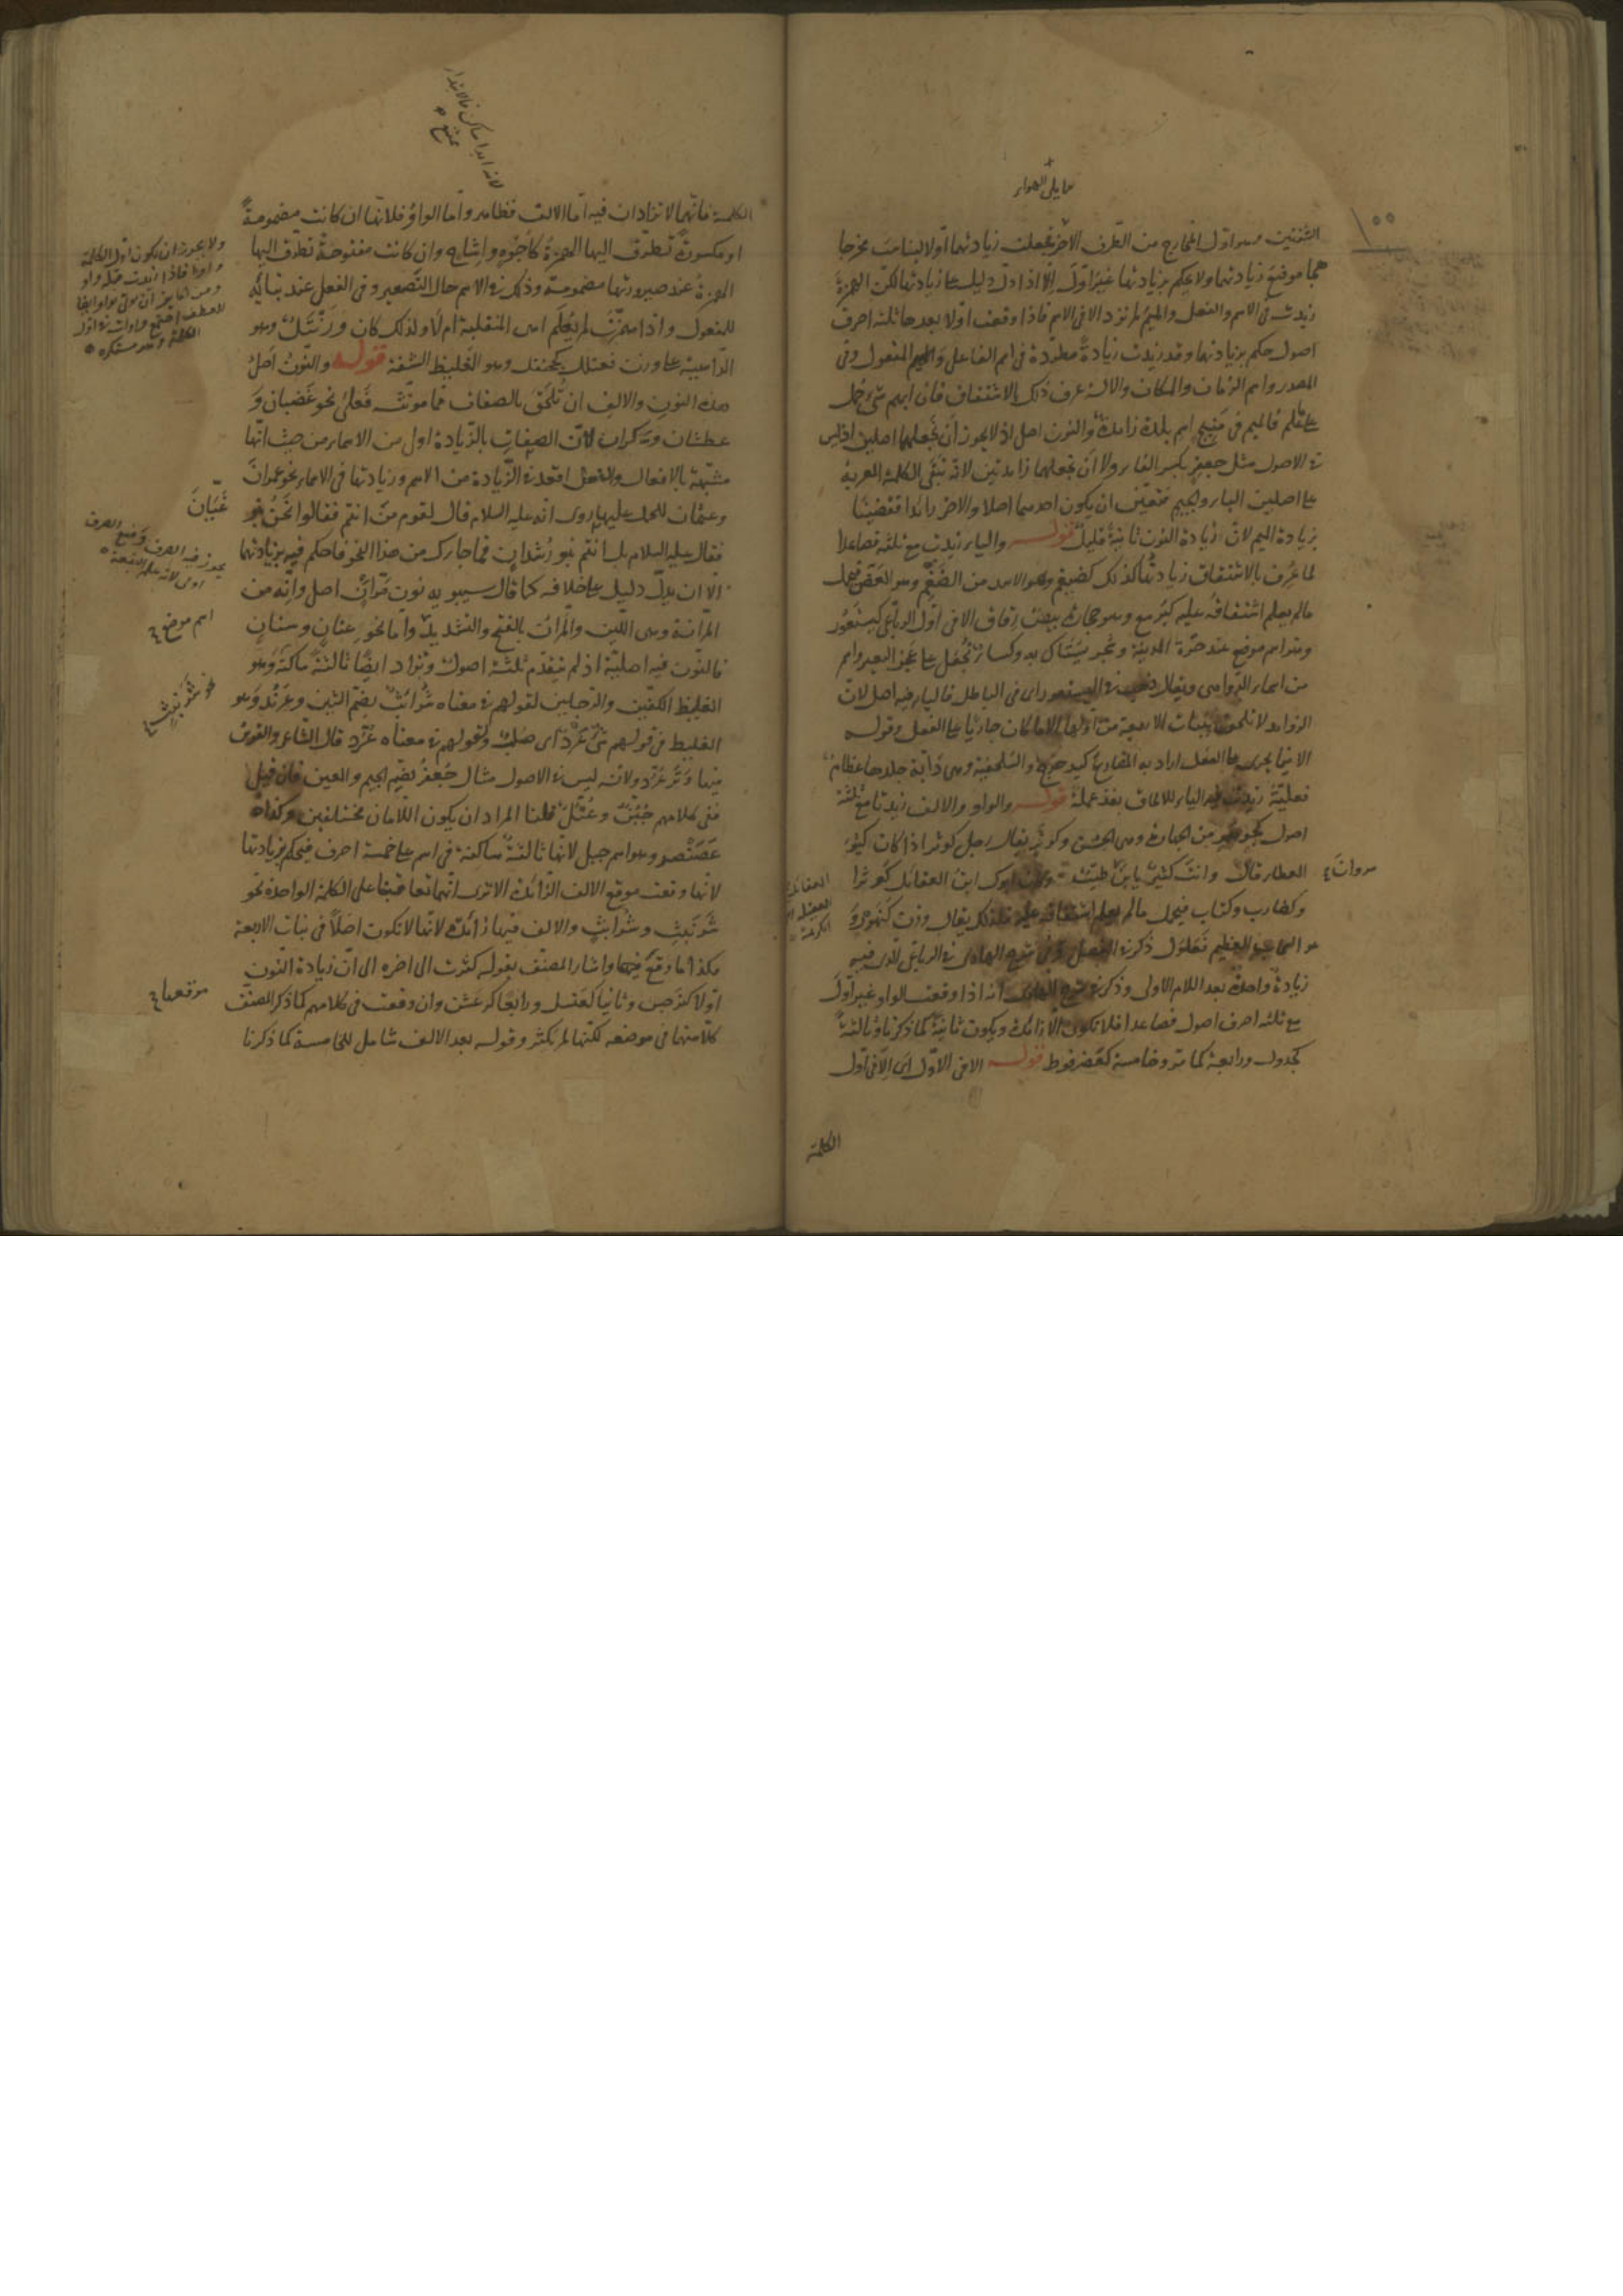 ١٥٥
مما يلي الهواء
الشفتين وهو اول المخارج من الطرف الآخر فجعلت زيادتهما اولا ليناسب مخرجا
هما موضع زيادتهما ولا يحكم بزيادتها غير اوّل الا اذا دل دليل على زيادتها لكن الهمزة
زيدت في الاسم والفعل والميم لم تزد الا في الاسم فاذا وقعت اولا بعدها ثلثة احرف
اصول حكم بزيادتها وقد زيدت زيادة مطّردة في اسم الفاعل واسم المفعول وفي
المصدر واسم الزمان والمكان والالة عرف ذلك بالاشتقاق فان ابهم شيء حمل
على ما علم فالميم في منبج اسم بلدة زائدة والنون اصل اذ لا يجوز ان نجعلهما اصلين اذ ليس
في الاصول مثل جعفر بكسر الفاء ولا ان نجعلهما زائدتين لانه تبقى الكلمة المعربة
على اصلين الباء والجيم فتعيّن ان يكون احدهما اصلا والاخر زائدا فقضينا
بزيادة الميم لان زيادة النون ثانية قليل قوله والياء زيدت مع ثلثة فصاعدا
لما عرف بالاشتقاق زيادتها كذلك كضيغم وهو الاسد من الضغم وهو العض فيحمل
ما لم يعلم اشتقاقه عليه كيرمع وهو حجارة بيض رقاق الا في اوّل الرباعي كيستعور
وهو اسم موضع عند حرّة المدينة وشجر يستاك به وكساء يُجعل على عجز البعير واسم
من اسماء الدواهي ويقال ذهب في اليستعور اي في الباطل فالياء فيه اصل لان
الزوائد لا تلحق ببنات الاربعة من اولها الا ما كان جاريا على الفعل وقوله
الا فيما يجري على الفعل اراد به المضارع كيدحرج والسلحفية وهي دابة جلدها عظام
فعليّة زيدت فيه الياء للالحاق بقذعملة قوله والواو والالف زيدتا مع ثلثة
اصول كجوهر من الجهارة وهي الحسن وكوثر يقال رجل كوثر اذا كان كثير
العطاء قال وانت كثير يا بن مروان طيب وكان ابوك ابن العقائل كوثرا
وكضارب وكتاب فيحمل ما لم يعلم اشتقاقه عليه فلذلك يقال وزن كنهور وهو
السحاب العظيم فعلول ذكره في المفصل وفي شرح الهادي في الرباعي الذي فيه
زيادة واحدة بعد اللام الاولى وذكر في شرح الهادي انه اذا وقعت الواو غير اوّل
مع ثلثة احرف اصول فصاعدا فلا تكون الا زائدة ويكون ثانية كما ذكرنا وثالثة
كجدول ورابعة كما مر وخامسة كعضرفوط قوله الا في الاوّل اي الا في اوّل
الكلمة
مروان
العقائل
لانه ابدا ساكن فالابتداء
ممتنع
الكلمة فانهما لا تزادان فيه اما الالف فظاهر واما الواو فلانها ان كانت مضمومة
او مكسورة تطرّق اليها الهمزة كاجوه واشاح وان كانت مفتوحة تطرق اليها
الهمزة عند صيرورتها مضمومة وذلك في الاسم حال التصغير وفي الفعل عند بنائه
للمفعول واذا همزت لم يعلم اهي المنقلبة ام لا ولذلك كان ورنتل وهو
الداهية على وزن فعنلل كجحنفل وهو الغليظ الشفة قوله والنون اصل
هذه النون والالف ان تلحق بالصفات مما مؤنثه فعلى نحو غضبان و
عطشان وسكران لان الصفات بالزيادة اولى من الاسماء من حيث انها
مشبّهة بالافعال والفعل اقعد في الزيادة من الاسم وزيادتها في الاسماء نحو عمران
وعثمان للحمل عليها روي انه عليه السلام قال لقوم من انتم فقالوا نحن بنو غيّان
فقال عليه السلام بل انتم بنو رشدان فما جاءك من هذا النحو فاحكم فيه بزيادتهما
الا ان يدل دليل على خلافه كما قال سيبويه نون مرّان اصل وانه من
المرانة وهي اللين والمران بالفتح والتشديد واما نحو عنان وسنان
فالنون فيه اصلية اذ لم يتقدم ثلثة اصول وتزاد ايضا ثالثة ساكنة نحو شرنبث وهو
الغليظ الكفين والرجلين لقولهم في معناه شرابث بضم الشين وعرند وهو
الغليظ من قولهم شيء عرد اي صلب ولقولهم في معناه عرد قال الشاعر والقوس
فيها وتر عرد ولانه ليس في الاصول مثال جعفر بضم الجيم والعين فان قيل
ففي كلامهم جبن وعتل قلنا المراد ان يكون اللامان مختلفين وكذا
عصنصر وهو اسم جبل لانها ثالثة ساكنة في اسم على خمسة احرف فيحكم بزيادتها
لانها وقعت موقع الالف الزائدة الا ترى انهما تعاقبتا على الكلمة الواحدة نحو
شرنبث وشرابث والالف فيها زائدة لانها لا تكون اصلا في بنات الاربعة
فكذا ما وقع موقعها واشار المصنف بقوله كثرت الى اخره الى ان زيادة النون
اولا كنرجس وثانيا كعنسل ورابعا كرعشن وان وقعت في كلامهم كما ذكر المصنف
كلا منها في موضعه لكنها لم تكثر وقوله بعد الالف شامل للخامسة كما ذكرنا
ولا يجوز ان يكون اول الكلمة
غيّان
يجوز فيه الصرف ومنع الصرف
اسم موضع
نحو شرنبث
موقعها